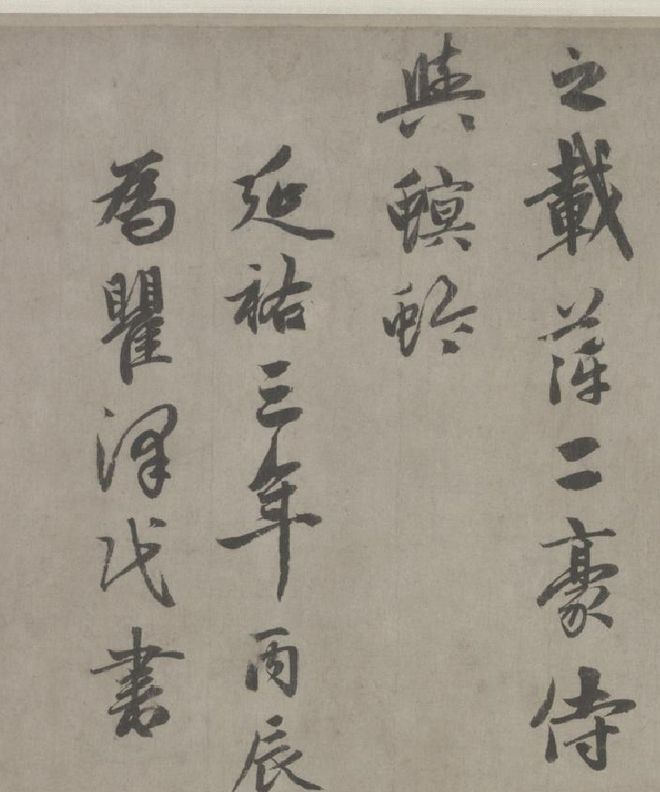 之載萍二豪侍
與螟蛉
延祐三年丙辰
為瞿澤民書